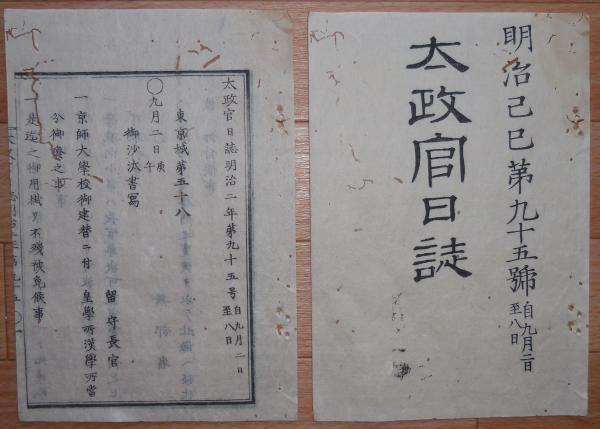 明治己巳第九十五號 自九月二日至八日
太政官日誌
太政官日誌明治二年第九十五号 自九月二日至八日
東京城第五十八
〇九月二日庚午
御沙汰書寫
留守長官
一京師大學校御建替ニ付皇學所漢學所當
分御廢之事
一是迄之御用掛リ不殘被免候事